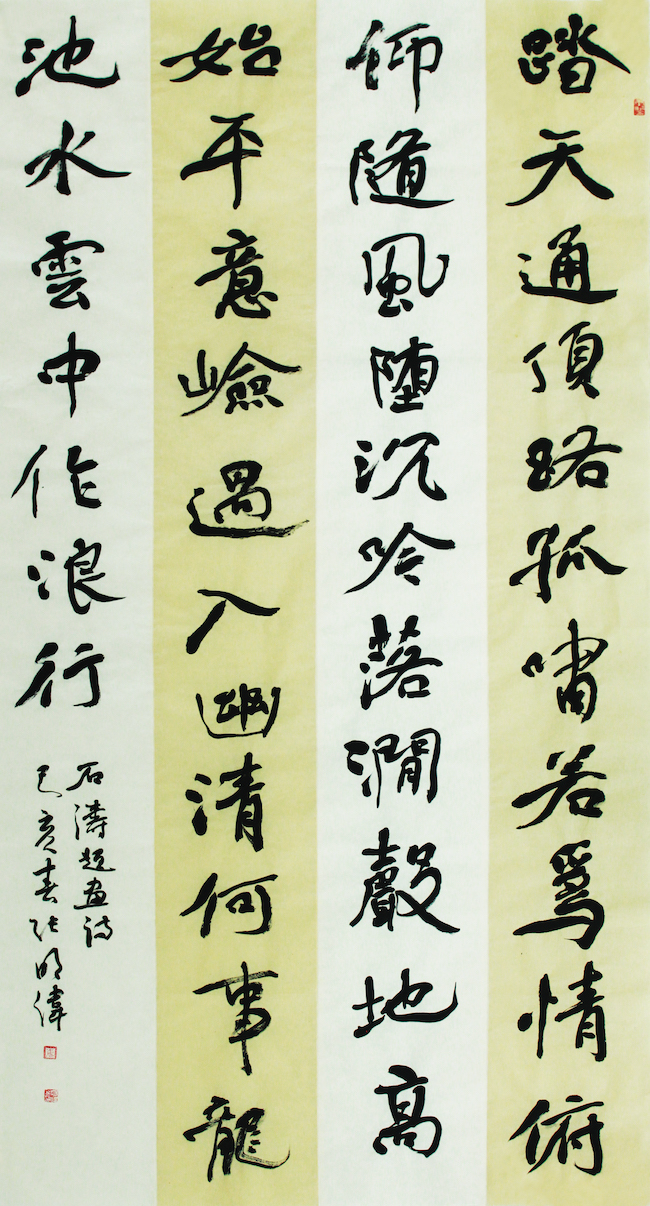 踏天通頂路孤嘯若爲情俯
仰隨風墮沉吟落澗聲地高
始平意嶮過入幽清何事龍
池水雲中作浪行
石濤題畫詩
己亥春張明偉